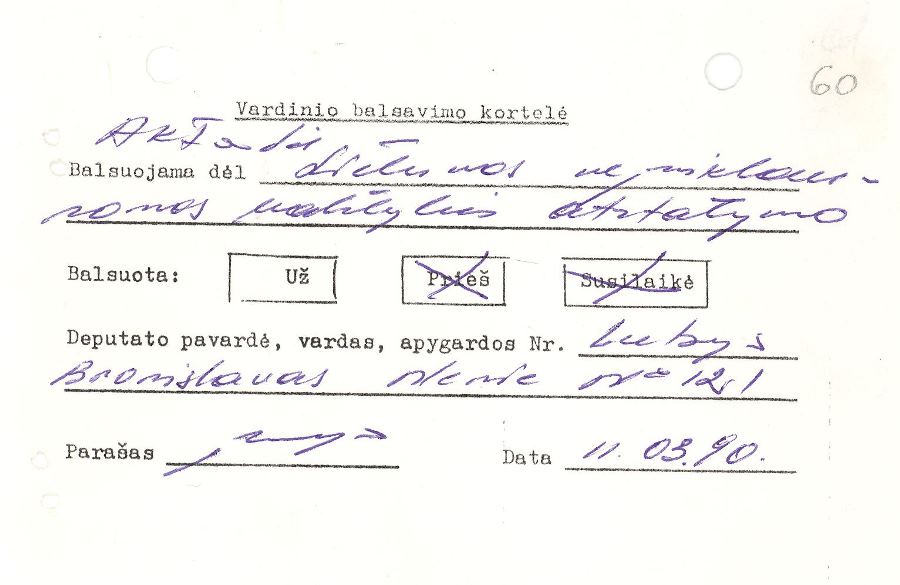 60
Vardinio balsavimo kortelė
Akto dėl
Balsuojama dėl Lietuvos nepriklauso-
mos valstybės atstatymo
Balsuota: Už Prieš Susilaikė
Deputato pavardė, vardas, apygardos Nr. Lubys
Bronislavas Nr 121
Parašas
Data 11.03.90.